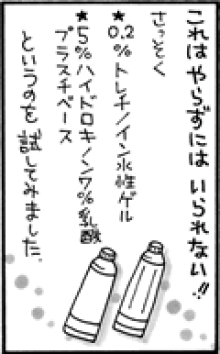 これはやらずにはいられない!!
さっそく
★0.2%トレチノイン水性ゲル
★5%ハイドロキノン7%乳酸
プラスチベース
というのを試してみました。